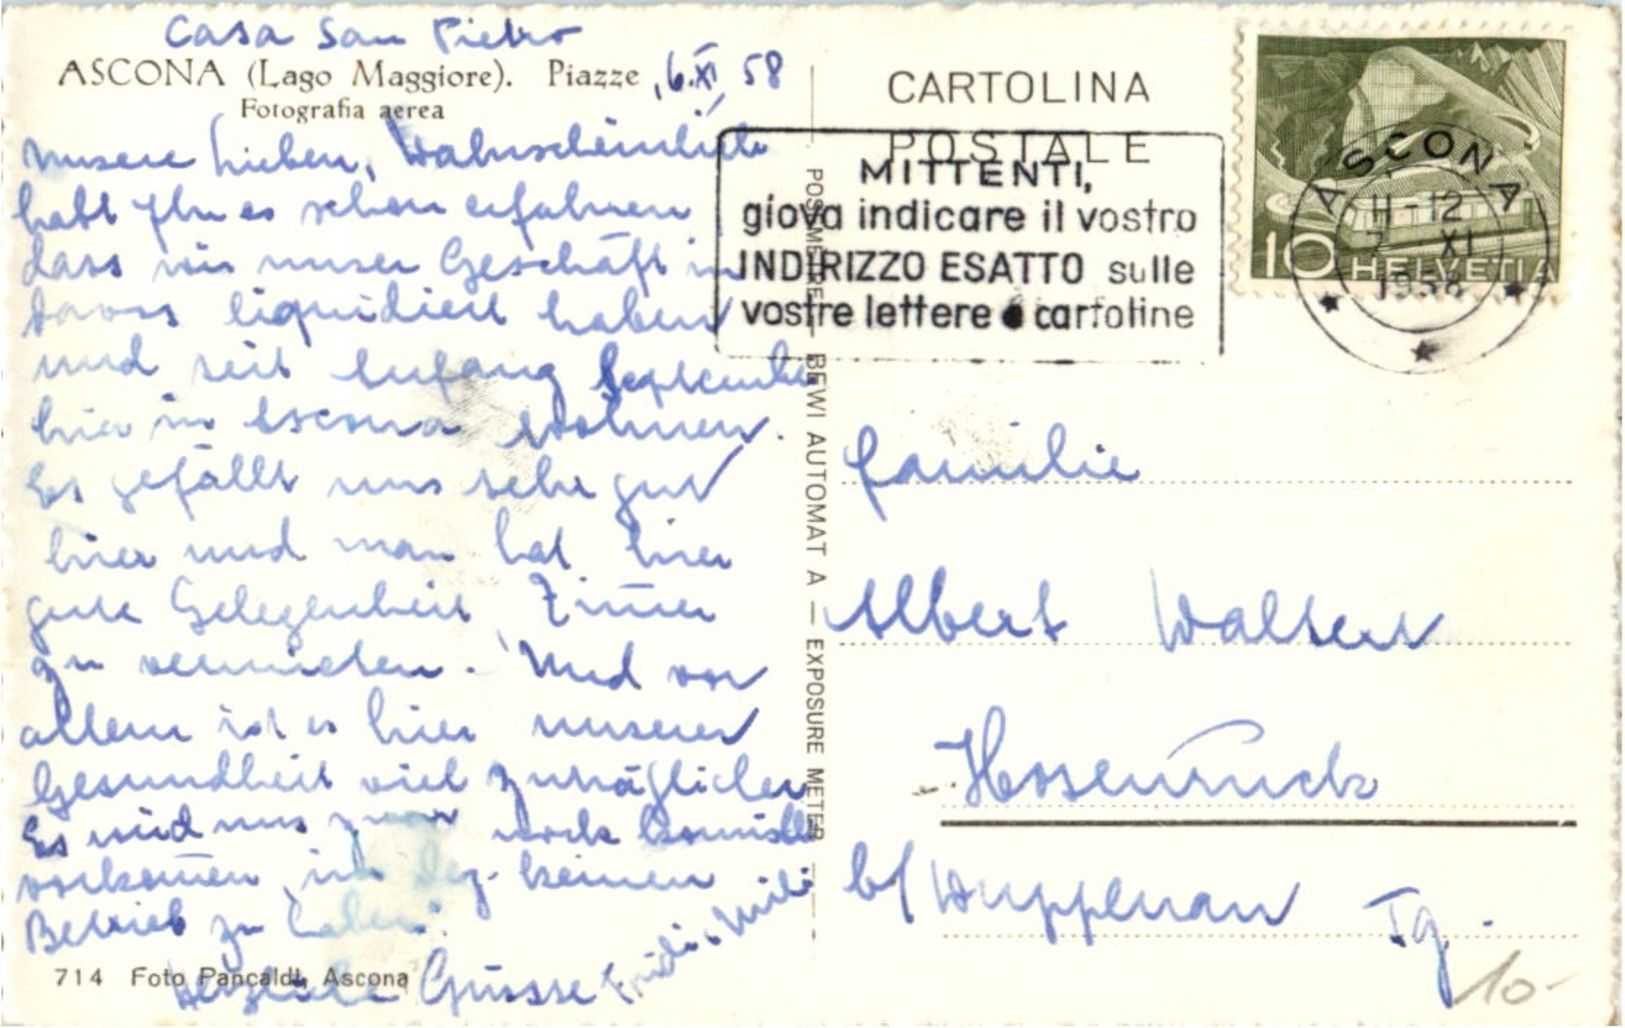 Casa San Pietro
ASCONA (Lago Maggiore). Piazze, 6.XI 58
Fotografia aerea
Unsere Lieben, Wahrscheinlich
habt Ihr es schon erfahren
dass wir unser Geschäft in
Davos liquidiert haben
und seit Anfang September
hier in Ascona wohnen.
Es gefällt uns sehr gut
hier und man hat hier
gute Gelegenheit Zimer
zu vermieten. Und vor
allem ist es hier unserer
Gesundheit viel zuträglicher
Es wird uns zwar noch komisch
vorkomen, im Dez. keinen
Betrieb zu haben.
Herzliche Grüsse Fridi + Mili
714 Foto Pancaldi, Ascona
POSEMETRE BEWI AUTOMAT A — EXPOSURE METER
CARTOLINA
POSTALE
MITTENTI,
giova indicare il vostro
INDIRIZZO ESATTO sulle
vostre lettere e cartoline
ASCONA
11-12
7. XI
1958
10 HELVETIA
Familie
Albert Walser
Hosenruck
b/ Wuppenau Tg.
10.-